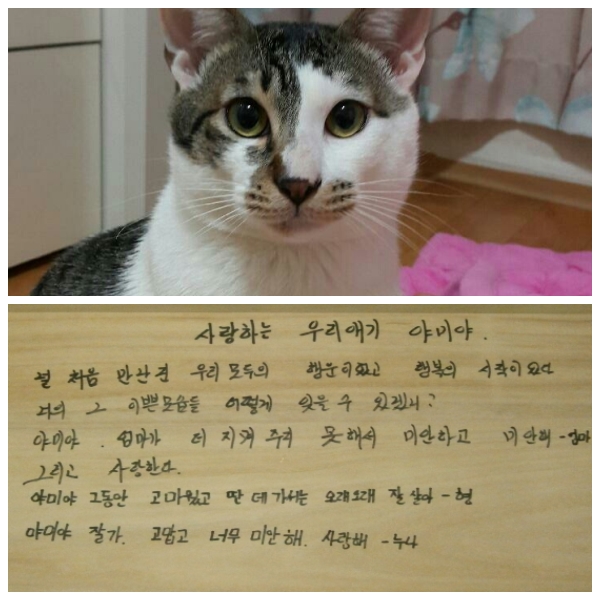 사랑하는 우리애기 야미야.
널 처음 만난건 우리 모두의 행운이였고 행복의 시작이였다
너의 그 이쁜모습들 어떻게 잊을 수 있겠니?
야미야. 엄마가 더 지켜 주지 못해서 미안하고 미안해 - 엄마
그리고 사랑한다.
야미야 그동안 고마웠고 딴 데가서는 오래오래 잘 살아 - 형
야미야 잘가. 고맙고 너무 미안해. 사랑해 - 누나